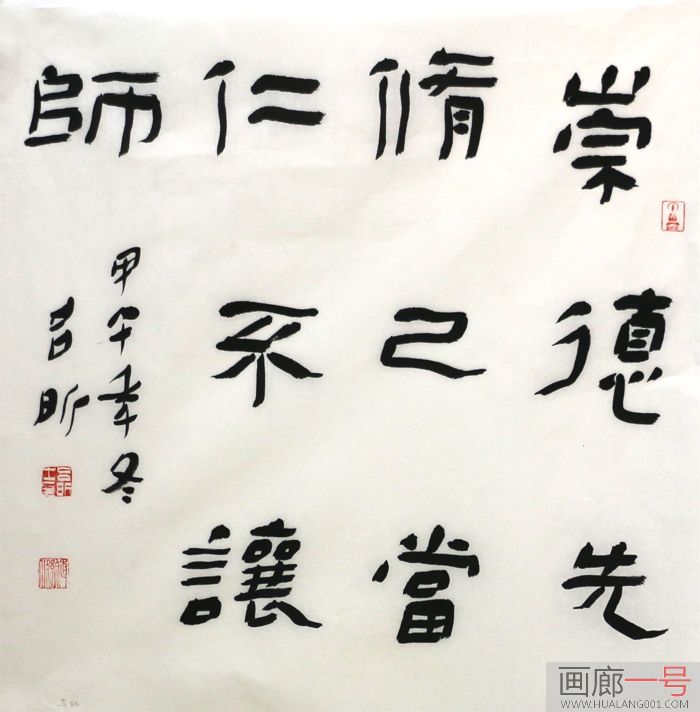 崇德先
脩己當
仁不讓
師
甲午年冬
吕昕
画廊一号
WWW.HUALANG001.COM